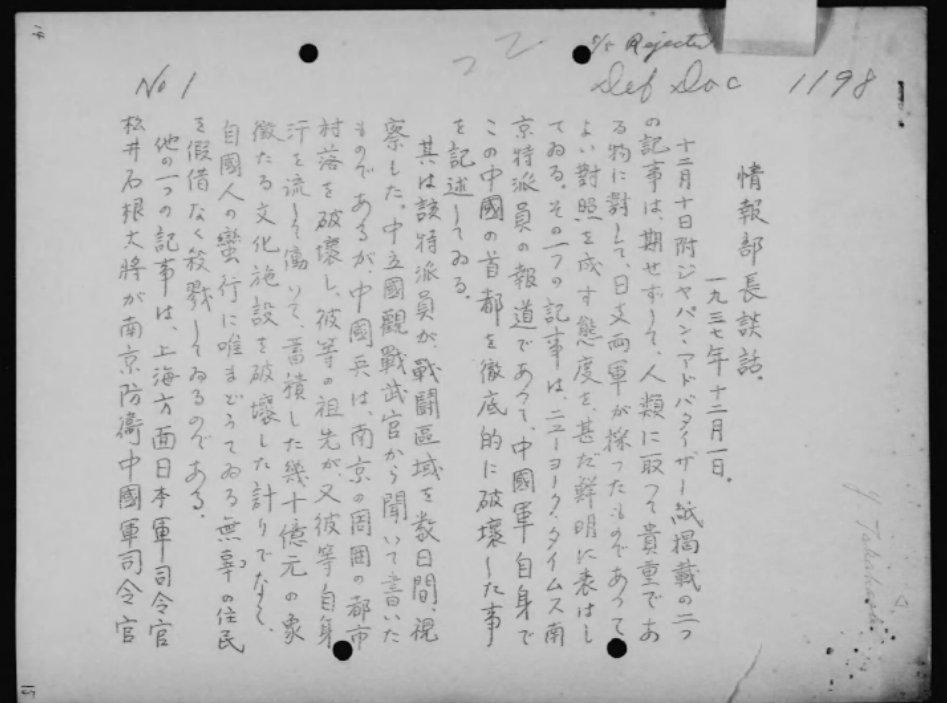 Rejected
Def Doc 1198
No 1
情報部長談話.
一九三七年十二月一日.
十二月十日附ジヤパン・アドバタイザー紙掲載の二つ
の記事は、期せずして、人類に取つて貴重であ
る物に對して、日支両軍が採つたものであつて
よい對照を成す態度を、甚だ鮮明に表はし
てゐる。その一つの記事は、ニューヨーク・タイムス南
京特派員の報道であつて、中國軍自身で
この中國の首都を徹底的に破壊した事
を記述してゐる。
其は該特派員が、戰闘區域を数日間、視
察した、中立國觀戰武官から聞いて書いた
ものであるが、中國兵は、南京の周囲の都市
村落を破壊し、彼等の祖先が、又彼等自身
汗を流して働いて、蓄積した幾十億元の象
徴たる文化施設を破壊した計りでなく、
自國人の蠻行に唯まどつてゐる無辜の住民
を假借なく殺戮してゐるのである。
他の一つの記事は、上海方面日本軍司令官
松井石根大將が南京防衛中國軍司令官